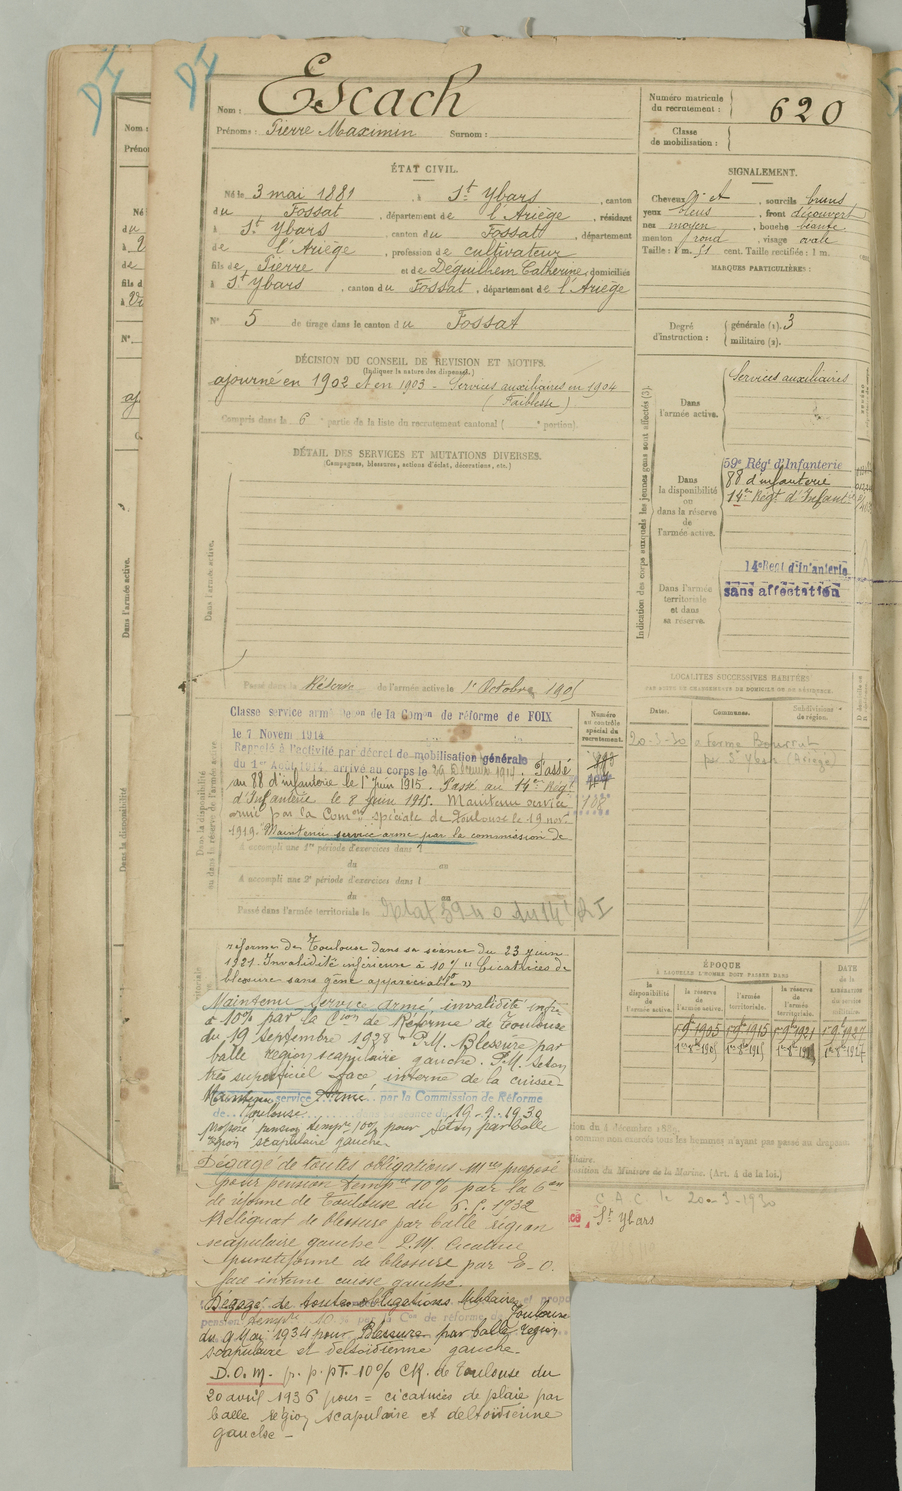 Nom : Escach
Prénoms : Pierre Maximin Surnom :
Numéro matricule du recrutement : 620
Classe de mobilisation :
ÉTAT CIVIL.
Né le 3 mai 1881, à St Ybars, canton
du Fossat, département de l'Ariège, résidant
à St Ybars, canton du Fossat, département
de l'Ariège, profession de cultivateur
fils de Pierre et de Déguilhem Catherine, domiciliés
à St Ybars, canton du Fossat, département de l'Ariège
N° 5 de tirage dans le canton du Fossat
SIGNALEMENT.
Cheveux , sourcils bruns
yeux bleus, front découvert
nez moyen, bouche
menton rond, visage ovale
Taille : 1 m. 51 cent. Taille rectifiée : 1 m.
MARQUES PARTICULIÈRES :
Degré d'instruction : générale (1). 3
militaire (2).
DÉCISION DU CONSEIL DE REVISION ET MOTIFS.
(Indiquer la nature des dispenses.)
ajourné en 1902 et en 1903 - Services auxiliaires en 1904
(Faiblesse)
Compris dans la 6e partie de la liste du recrutement cantonal ( e portion).
DÉTAIL DES SERVICES ET MUTATIONS DIVERSES.
(Campagnes, blessures, actions d'éclat, décorations, etc.)
Dans l'armée active.
Indication des corps auxquels les jeunes gens sont affectés (3)
Dans l'armée active.
Services auxiliaires
Dans la disponibilité ou dans la réserve de l'armée active.
59e Régt d'Infanterie
88 d'infanterie
14e Régt d'Infantie
Dans l'armée territoriale et dans sa reserve.
14e Regt d'infanterie
sans affectation
Passé dans la Réserve de l'armée active le 1er Octobre 1905
Classe service armé de la Comon de réforme de FOIX
le 7 Novem 1914
Rappelé à l'activité par décret de mobilisation générale
du 1er Août 1914, arrivé au corps le 1914. Passé
au 88 d'infanterie le 1er Juin 1915. Passé au 14e Régt
d'Infanterie le 8 Juin 1915. Maintenu service
armé par la Comon spéciale de Toulouse le 19 nov.
1919. Maintenu service armé par la commission de
A accompli une 1re période d'exercices dans l
du au
A accompli une 2e période d'exercices dans l
du au
Passé dans l'armée territoriale le
Numéro au contrôle spécial du recrutement.
réforme de Toulouse dans sa séance du 23 juin
1921. Invalidité inférieure à 10% "Cicatrices de
blessure sans gêne appréciable"
Maintenu service armé invalidité infre
à 10% par la Cion de Réforme de Toulouse
du 19 septembre 1928 "P.M. Blessure par
balle region scapulaire gauche. P.M. Seton
très superficiel face interne de la cuisse"
Maintenu service Armé par la Commission de Réforme
de Toulouse dans sa séance du 19-2-1930
proposé pension tempre 10% pour seton par balle
région scapulaire gauche
Dégagé de toutes obligations Mres proposé
pour pension tempre 10% par la Con
de réforme de Toulouse du 1932
Reliquat de blessure par balle région
scapulaire gauche - P.M. Cicatrice
punctiforme de blessure par E-O.
face interne cuisse gauche.
Dégagé de toutes obligations Militaires et propo
pension tempre 10% par la Con de réforme de Toulouse
du 9 Mai 1934 pour Blessure par balle, région
scapulaire et deltoïdienne gauche.
D.O.M. p. p. pT. 10% CR. de Toulouse du
20 avril 1936 pour = cicatrices de plaie par
balle région scapulaire et deltoïdienne
gauche -
LOCALITÉS SUCCESSIVES HABITÉES
PAR SUITE DE CHANGEMENTS DE DOMICILE OU DE RÉSIDENCE.
Dates. Communes. Subdivisions de région.
20-3-30 Ferme Bourrut
par St Ybars (Ariège)
ÉPOQUE
À LAQUELLE L'HOMME DOIT PASSER DANS
DATE de la LIBÉRATION du service militaire.
la disponibilité de l'armée active. la réserve de l'armée active. l'armée territoriale. la réserve de l'armée territoriale.
1er 8bre 1905 1er 8bre 1915 1er 8bre 1927
(Art. 4 de la loi.)
C A C le 20-3-1930
St Ybars